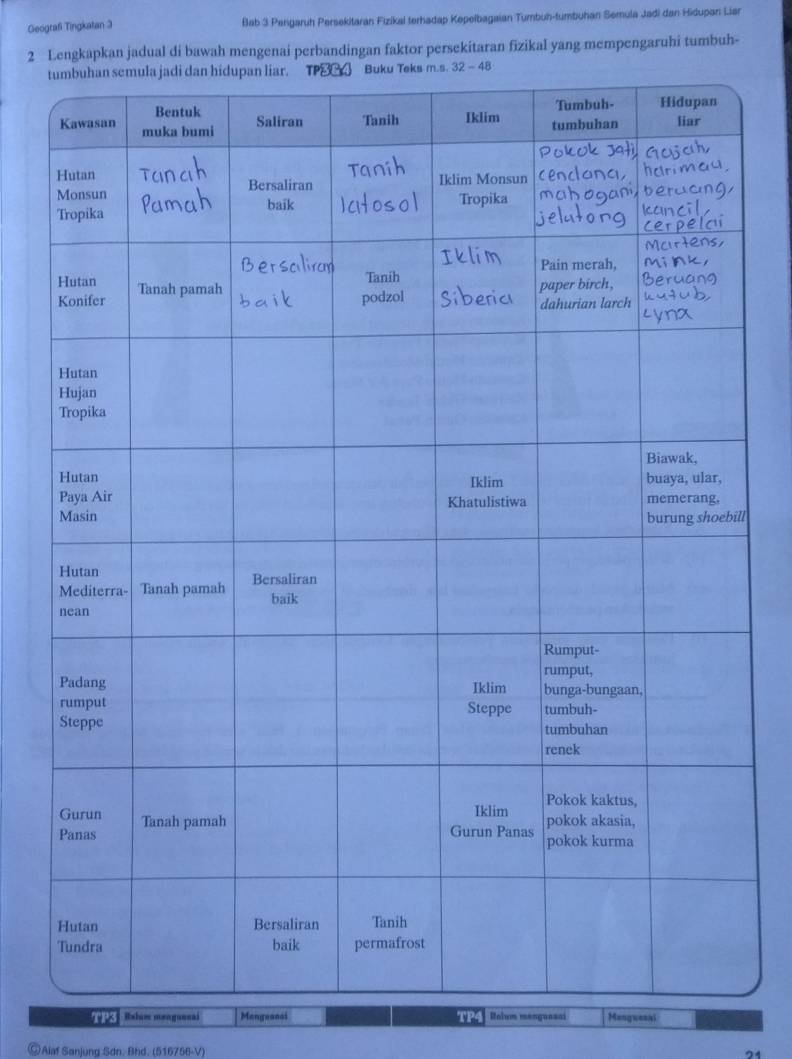 Geografi Tingkatan 3
Bab 3 Pengaruh Persekitaran Fizikal terhadap Kepelbagaian Tumbuh-tumbuhan Semula Jadi dan Hidupan Liar
2 Lengkapkan jadual di bawah mengenai perbandingan faktor persekitaran fizikal yang mempengaruhi tumbuh-
tumbuhan semula jadi dan hidupan liar. TP3 TP4 Buku Teks m.s. 32 – 48
Kawasan
Bentuk
muka bumi
Saliran
Tanih
Iklim
Tumbuh-
tumbuhan
Hidupan
liar
Hutan
Monsun
Tropika
Tanah
Pamah
Bersaliran
baik
Tanih
latosol
Iklim Monsun
Tropika
Pokok Jati,
cendana,
mahogani,
jelutong
Gajah,
harimau,
beruang,
kancil,
cerpelai
Hutan
Konifer
Tanah pamah
Bersaliran
baik
Tanih
podzol
Iklim
Siberia
Pain merah,
paper birch,
dahurian larch
Martens,
Mink,
Beruang
kutub,
Lynx
Hutan
Hujan
Tropika
Hutan
Paya Air
Masin
Iklim
Khatulistiwa
Biawak,
buaya, ular,
memerang,
burung shoebill
Hutan
Mediterra-
nean
Tanah pamah
Bersaliran
baik
Padang
rumput
Steppe
Iklim
Steppe
Rumput-
rumput,
bunga-bungaan,
tumbuh-
tumbuhan
renek
Gurun
Panas
Tanah pamah
Iklim
Gurun Panas
Pokok kaktus,
pokok akasia,
pokok kurma
Hutan
Tundra
Bersaliran
baik
Tanih
permafrost
TP3 Belum menguasai Menguasai TP4 Belum menguasai Menguasai
© Alaf Sanjung Sdn. Bhd. (516756-V)
21